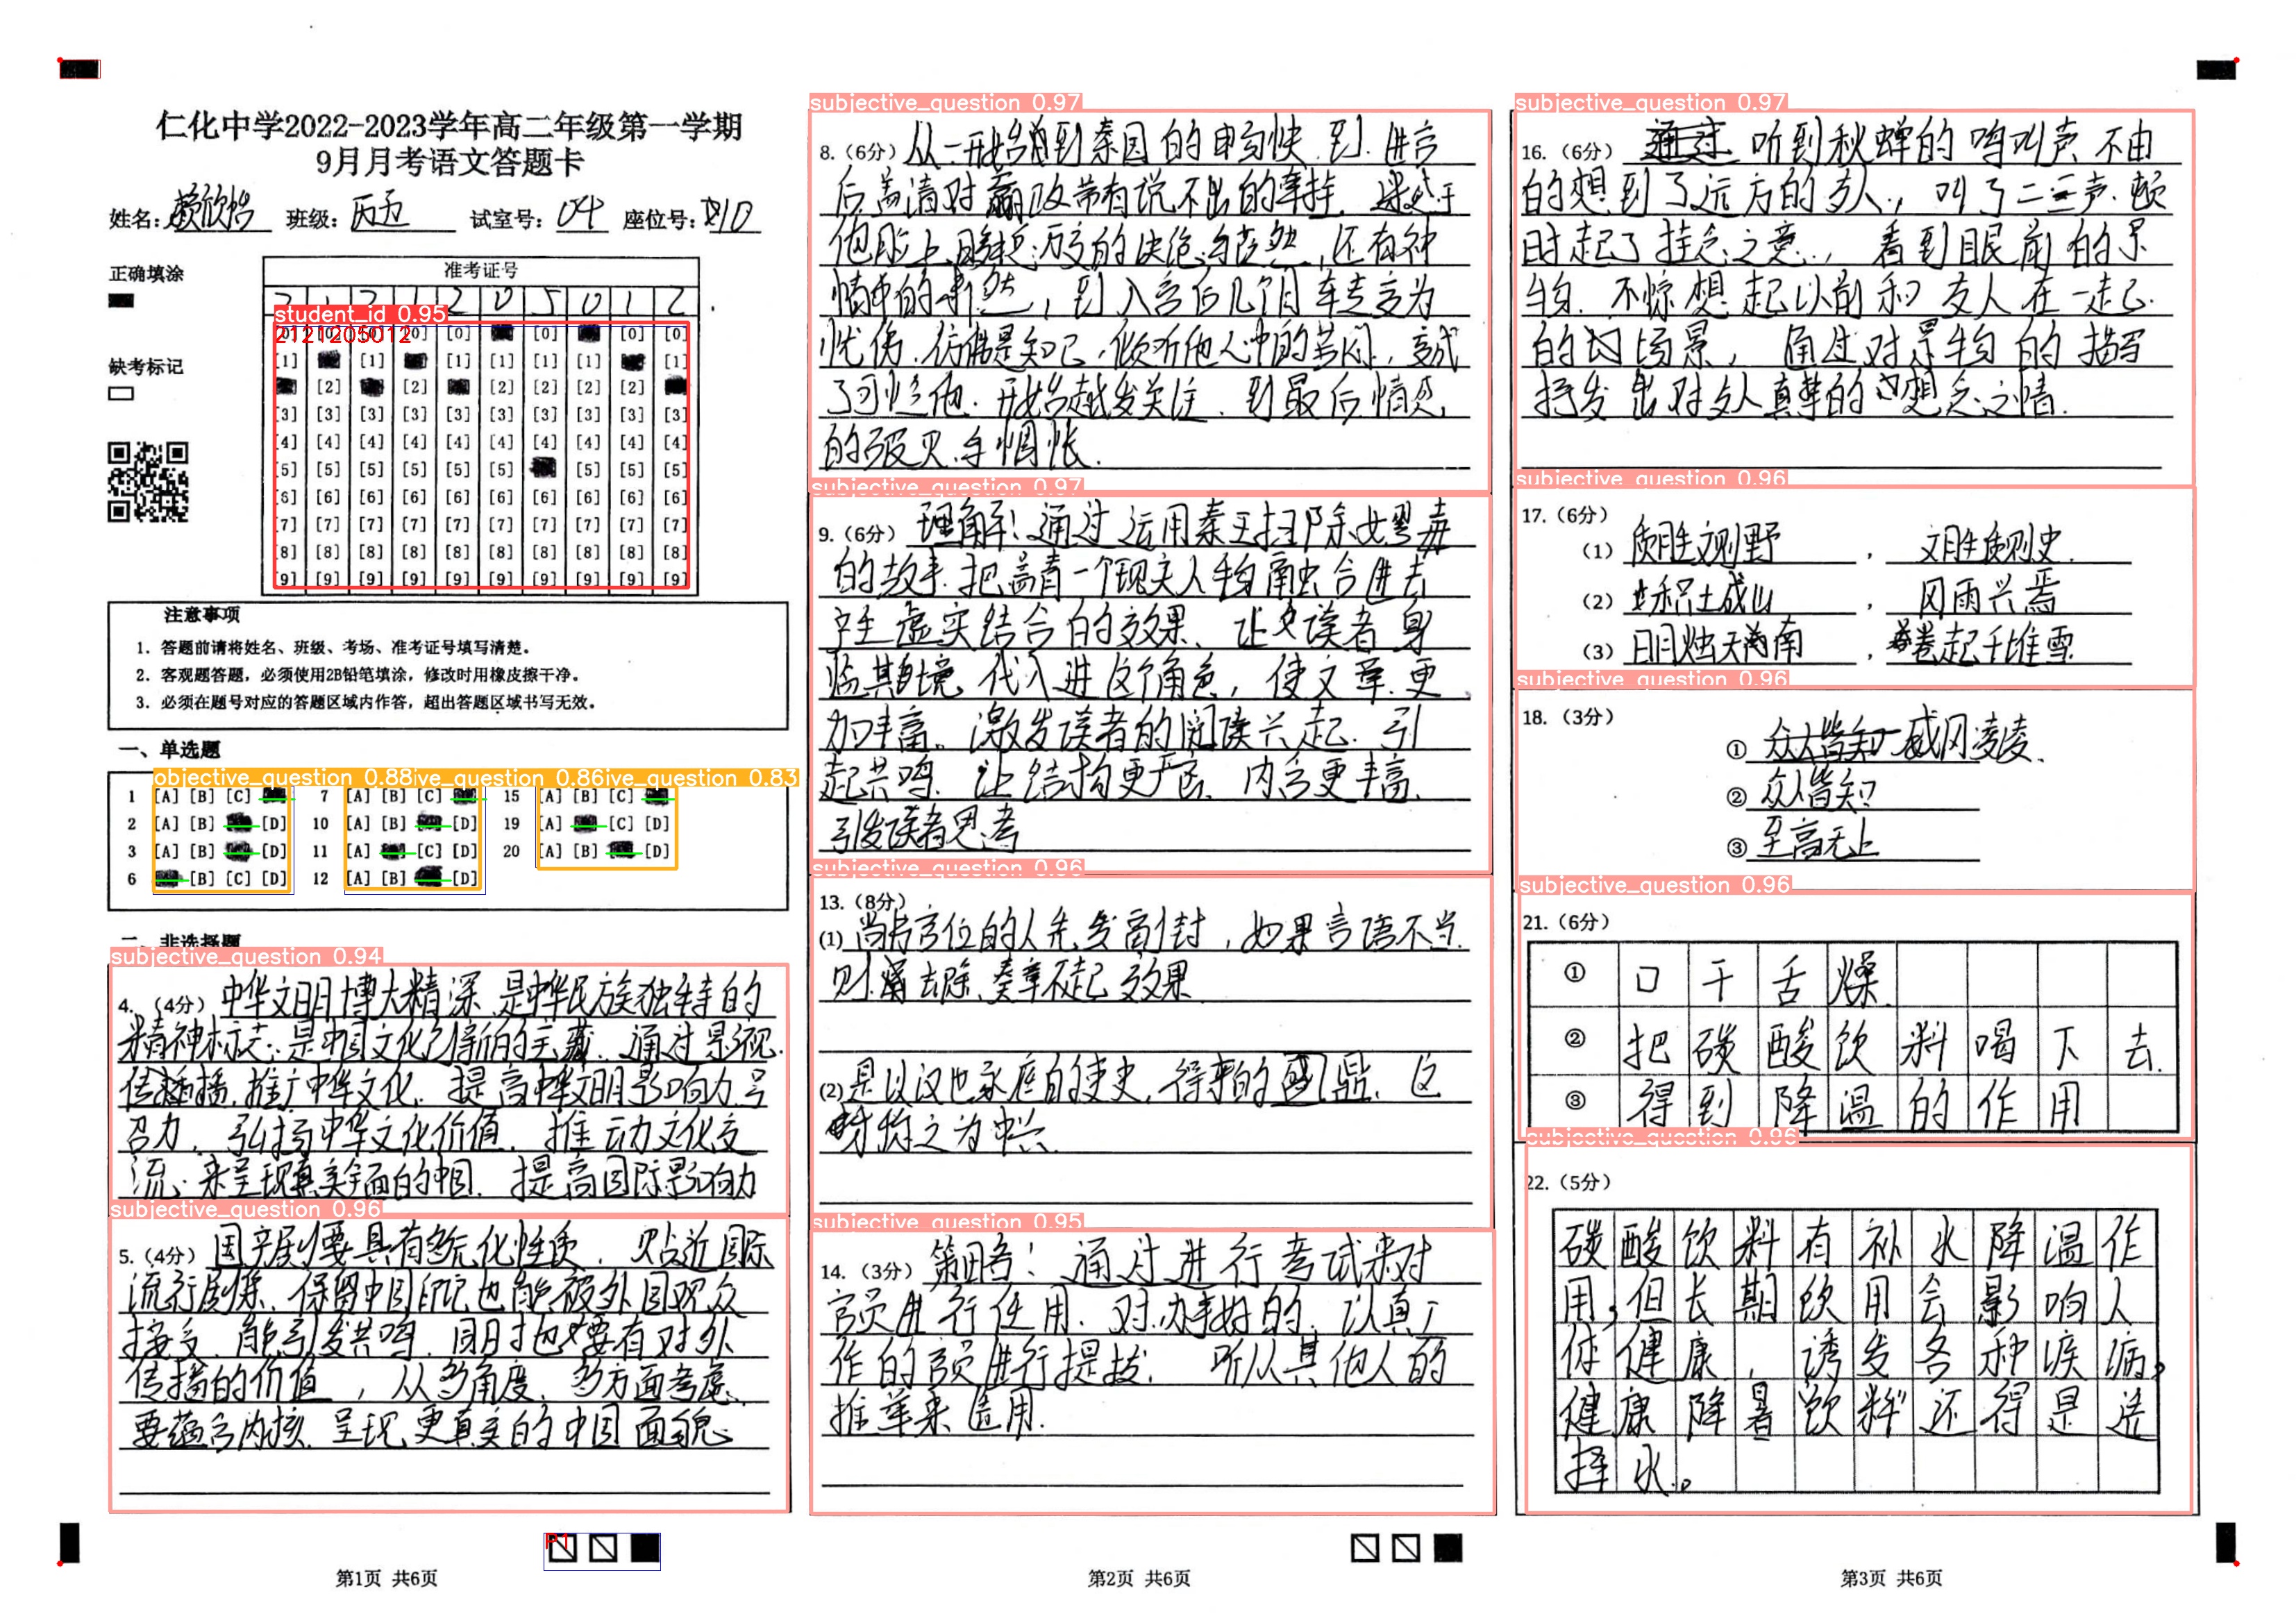 仁化中学2022-2023学年高二年级第一学期
9月月考语文答题卡
姓名: 赖欣怡 班级: 丙五 试室号: 04 座位号: 10
正确填涂
准考证号
2 1 2 1 2 0 5 0 1 2
student_id 0.95
2121205012
缺考标记
[0] [0] [0] [0] [0] [0] [0]
[1] [1] [1] [1] [1] [1] [1]
[2] [2] [2] [2] [2] [2]
[3] [3] [3] [3] [3] [3] [3] [3] [3] [3]
[4] [4] [4] [4] [4] [4] [4] [4] [4] [4]
[5] [5] [5] [5] [5] [5] [5] [5] [5]
[6] [6] [6] [6] [6] [6] [6] [6] [6] [6]
[7] [7] [7] [7] [7] [7] [7] [7] [7] [7]
[8] [8] [8] [8] [8] [8] [8] [8] [8] [8]
[9] [9] [9] [9] [9] [9] [9] [9] [9] [9]
注意事项
1. 答题前请将姓名、班级、考场、准考证号填写清楚。
2. 客观题答题，必须使用2B铅笔填涂，修改时用橡皮擦干净。
3. 必须在题号对应的答题区域内作答，超出答题区域书写无效。
一、单选题
objective_question 0.88 ive_question 0.86 ive_question 0.83
1 [A] [B] [C] 7 [A] [B] [C] 15 [A] [B] [C]
2 [A] [B] [D] 10 [A] [B] [D] 19 [A] [C] [D]
3 [A] [B] [D] 11 [A] [C] [D] 20 [A] [B] [D]
6 [B] [C] [D] 12 [A] [B] [D]
二、非选择题
subjective_question 0.94
4. (4分) 中华文明博大精深,是中华民族独特的
精神标志,是中国文化创新的宝藏. 通过影视
传播,推广中华文化. 提高中华文明影响力,号
召力, 弘扬中华文化价值, 推动文化交
流.来呈现真实全面的中国, 提高国际影响力
subjective_question 0.96
5. (4分) 国产剧要具有多元化性质, 贴近国际
流行剧集, 保留中国印记也能被外国观众
接受, 能引发共鸣, 同时也要有对外
传播的价值, 从多角度、多方面考虑.
要蕴含内核, 呈现更真实的中国面貌
P1
第1页 共6页
subjective_question 0.97
8. (6分) 从一开始到秦国的愉快, 到进宫
后 清对嬴政带有说不出的牵挂,
他脸上 的决绝与 ,还有神
情中的 , 到入宫后几个月 转变为
忧伤, 仿佛是知己, 倾听他心中的苦闷, 变成
了 他, 开始越发关注, 到最后情
的破灭与惆怅.
subjective_question 0.97
9. (6分) 理解: 通过运用秦王扫除嫪毐
的故事,把 清一个现实人物融合进去
产生虚实结合的效果, 让读者身
临其境 代入进这个角色, 使文章更
加丰富。激发读者的阅读兴起, 引
起共鸣. 让结构更严密, 内容更丰富,
引发读者思考
subjective_question 0.96
13. (8分)
(1) 当 官位的人先 高 封, 如果言语不当,
则 去除,奏章不起效果
(2) 是以汉 的 史, 得来的 鼎, 这
之为中兴.
subjective_question 0.95
14. (3分) 策略: 通过进行考试来对
官员进行任用, 对办事好的, 认真工
作的官员进行提拔, 听从其他人的
推荐来选用.
第2页 共6页
subjective_question 0.97
16. (6分) 听到秋蝉的鸣叫声,不由
的想到了远方的友人, 叫了二三声,顿
时起了挂念之意, 看到眼前的景
物, 不惊想起以前和友人在一起
的场景, 通过对景物的描写
抒发出对友人真挚的想念之情.
subjective_question 0.96
17. (6分)
(1) 质胜文则野 , 文胜质则史.
(2) 积土成山 , 风雨兴焉
(3) 日月烛天南 , 卷起千堆雪
subjective_question 0.96
18. (3分)
① 众人皆知 威风凌凌.
② 众人皆知
③ 至高无上
subjective_question 0.96
21. (6分)
① 口干舌燥.
② 把碳酸饮料喝下去.
③ 得到降温的作用
subjective_question 0.96
22. (5分)
碳酸饮料有补水降温作
用,但长期饮用会影响人
体健康,诱发各种疾病。
健康降暑饮料还得是选
择水。
第3页 共6页